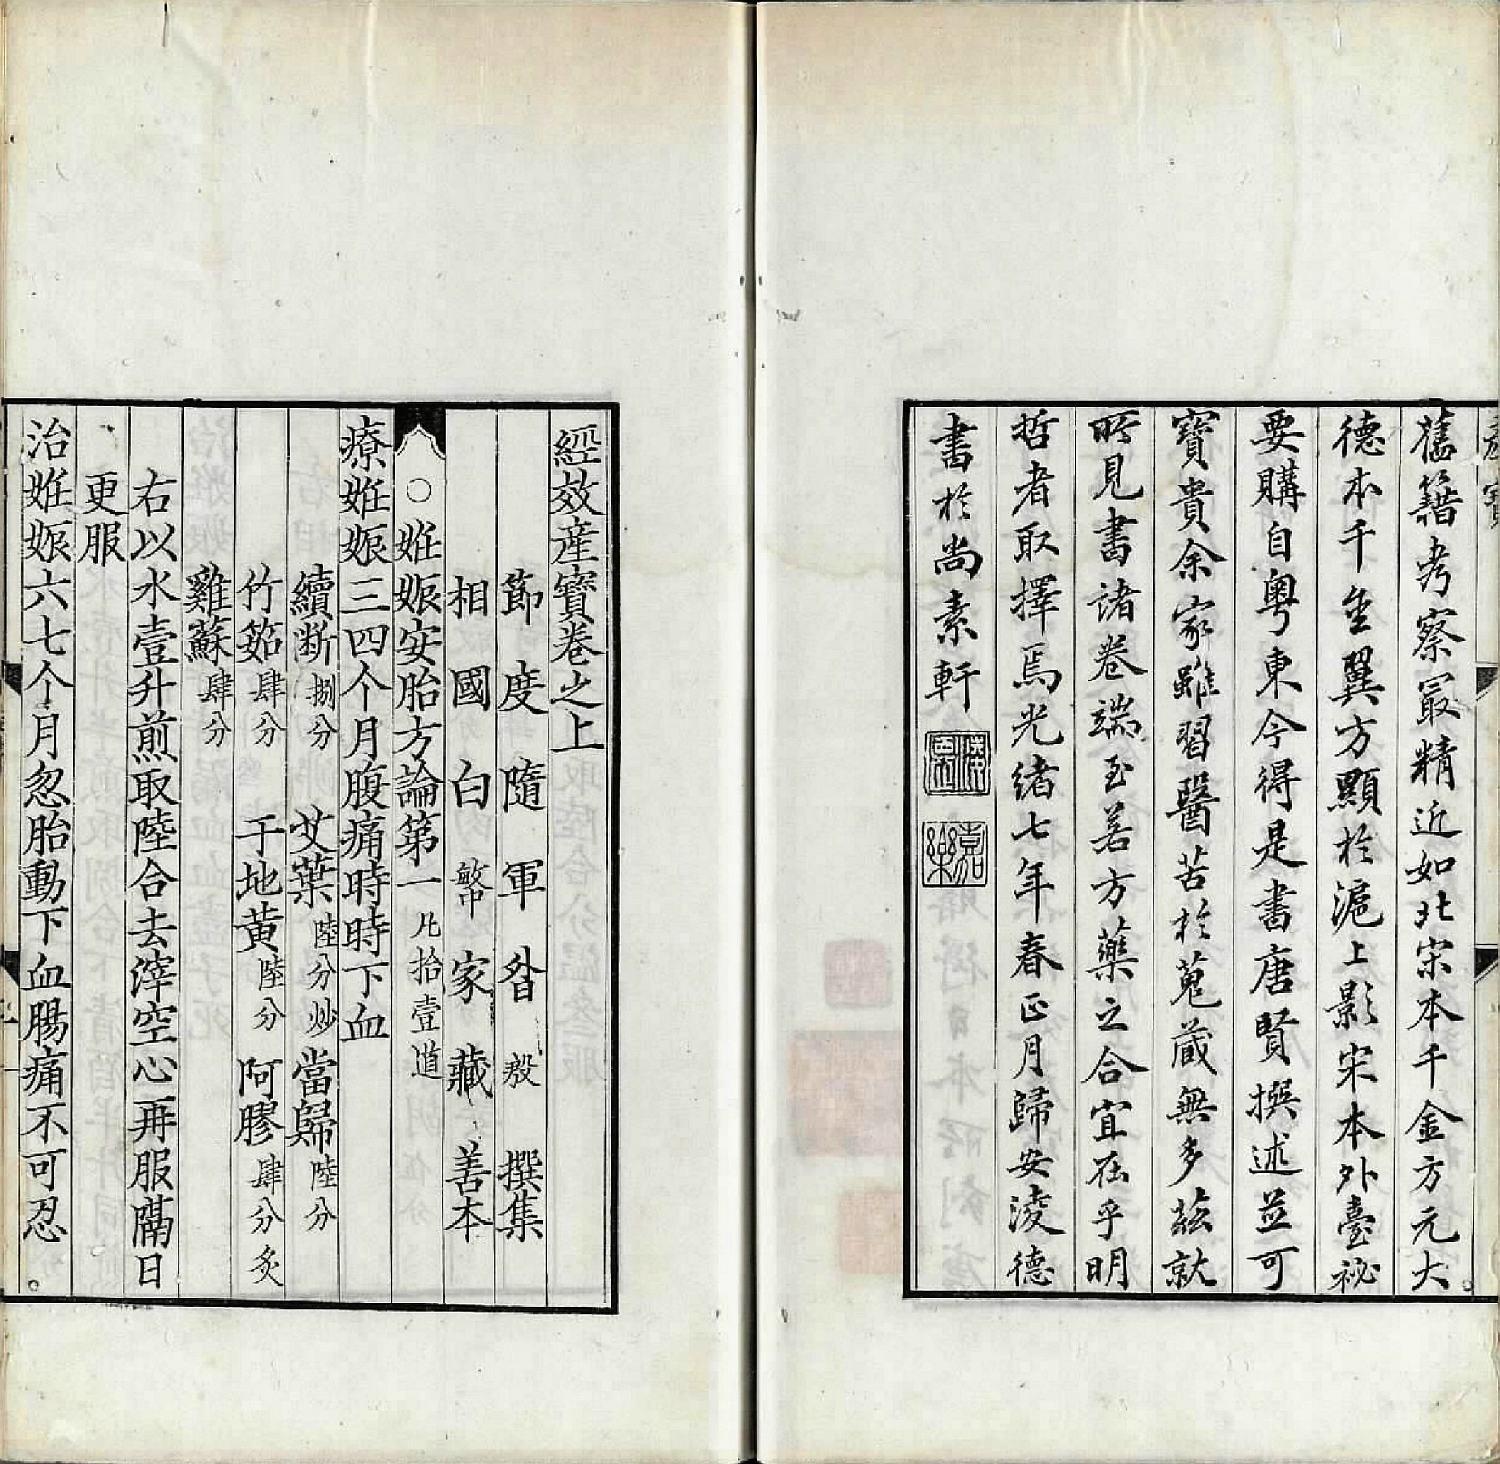 舊籍考察冣精近如北宋本千金方元大
德本千金翼方顯於滬上影宋本外臺祕
要購自粤東今得是書唐賢撰述並可
寶貴余家雖習醫苦於蒐藏無多茲就
所見書諸卷端至若方藥之合宜在乎明
哲者取擇焉光緒七年春正月歸安淩德
書於尚素軒
經效產寶卷之上
節度隨軍昝殷撰集
相國白敏中家藏善本
○姙娠安胎方論第一 凡拾壹道
療姙娠三四个月腹痛時時下血
續断捌分 艾葉陸分炒 當歸陸分
竹筎肆分 干地黄陸分 阿膠肆分炙
雞蘇肆分
右以水壹升煎取陸合去滓空心再服隔日
更服
治姙娠六七个月忽胎動下血腸痛不可忍